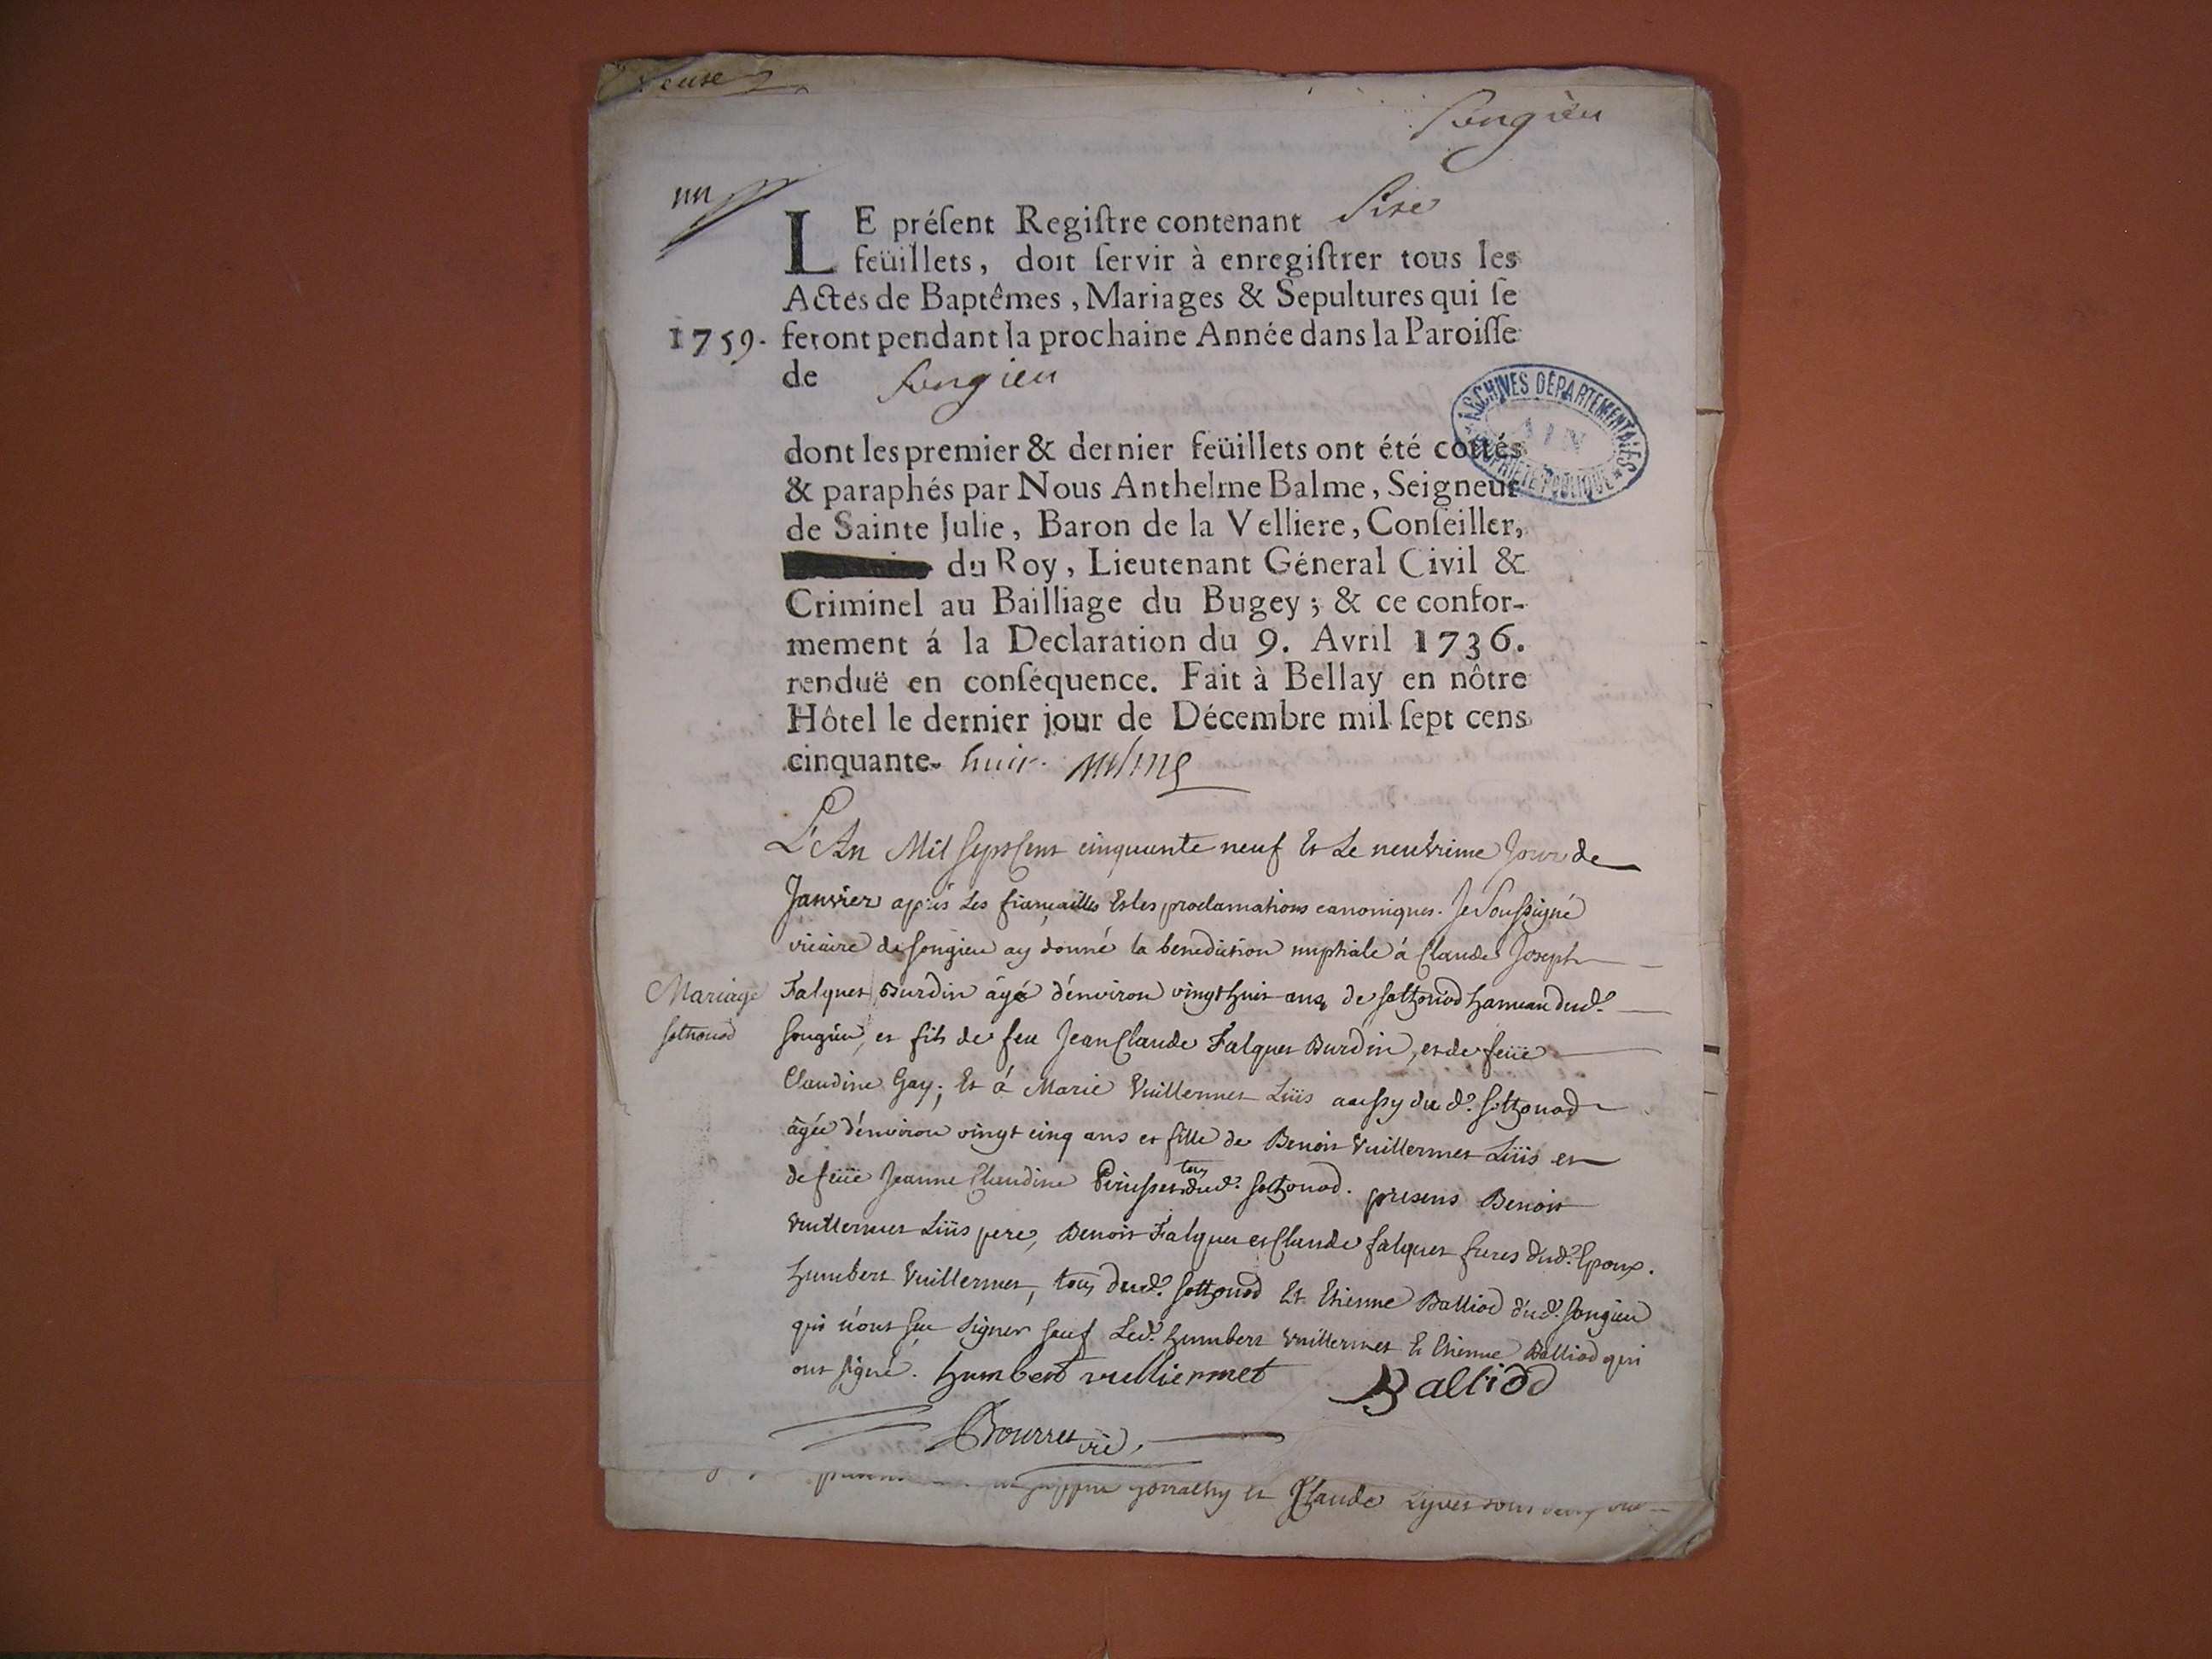 Songieu
un
LE préſent Regiſtre contenant Sise
feüillets, doit ſervir à enregiſtrer tous les
Actes de Baptêmes, Mariages & Sepultures qui ſe
1759. feront pendant la prochaine Année dans la Paroiſſe
de Songieu
ARCHIVES DÉPARTEMENTALES
AIN
PROPRIÉTÉ PUBLIQUE
dont les premier & dernier feüillets ont été cottés
& paraphés par Nous Anthelme Balme, Seigneur
de Sainte Julie, Baron de la Velliere, Conſeiller,
du Roy, Lieutenant Géneral Civil &
Criminel au Bailliage du Bugey; & ce confor-
mement á la Declaration du 9. Avril 1736.
renduë en conſéquence. Fait à Bellay en nôtre
Hôtel le dernier jour de Décembre mil ſept cens
cinquante- huit.
L'An Mil Sept Cent cinquante neuf Et Le neuvième Jour de
Janvier après Les fiançailles Et les proclamations canoniques. Je Soussigné
vicaire de Songieu ay donné la benediction nuptiale á Claude Joseph
Mariage Falquet Burdin âgé d'environ vingt huit ans de Sothonod hameau dud.
Sothonod Songieu, et fils de feu Jean Claude Falquet Burdin, et de feüe
Claudine Gay; Et á Marie Vuillermet Lüis aussy du d. Sothonod
âgée d'environ vingt cinq ans et fille de Benoit Vuillermet Lüis et
de feüe Jeanne Claudine tous dud. Sothonod. presens Benoit
Vuillermet Lüis pere, Benoit Falquet et Claude falquet freres dud. Epoux.
humbert Vuillermet, tous dud. Sothonod Et Etienne Balliod dud. Songieu
qui n'ont sçu signer sauf Led. humbert Vuillermet Et Etienne Balliod qui
ont signé. humbert vulliermet Balliod
Bourret vic.
et Claude